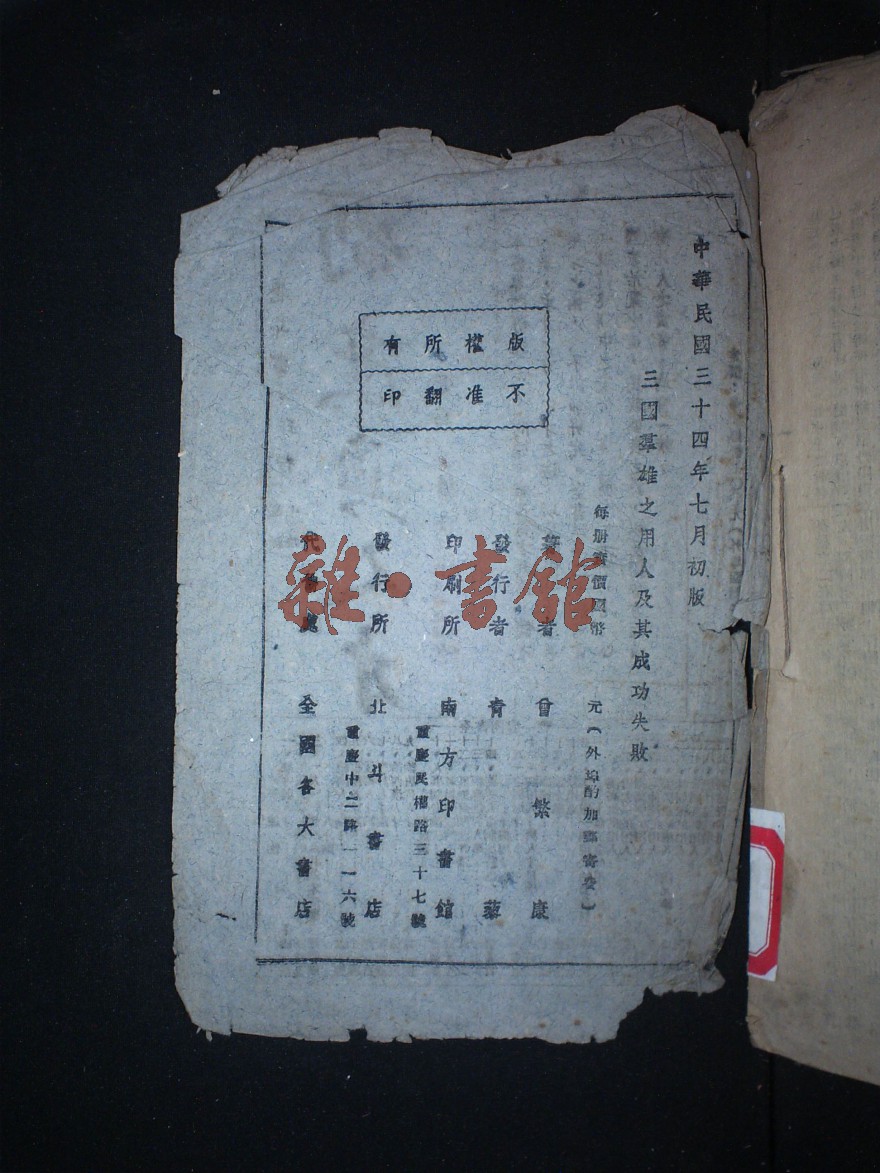 中華民國三十四年七月初版
三國羣雄之用人及其成功失敗
每册實價國幣 元(外埠酌加郵寄費)
著者 曾繁康
發行者 青藜
印刷所 南方印書館
重慶民權路三十七號
發行所 北斗書店
重慶中二路一一六號
代售處 全國各大書店
版權所有
不准翻印
雜·書館